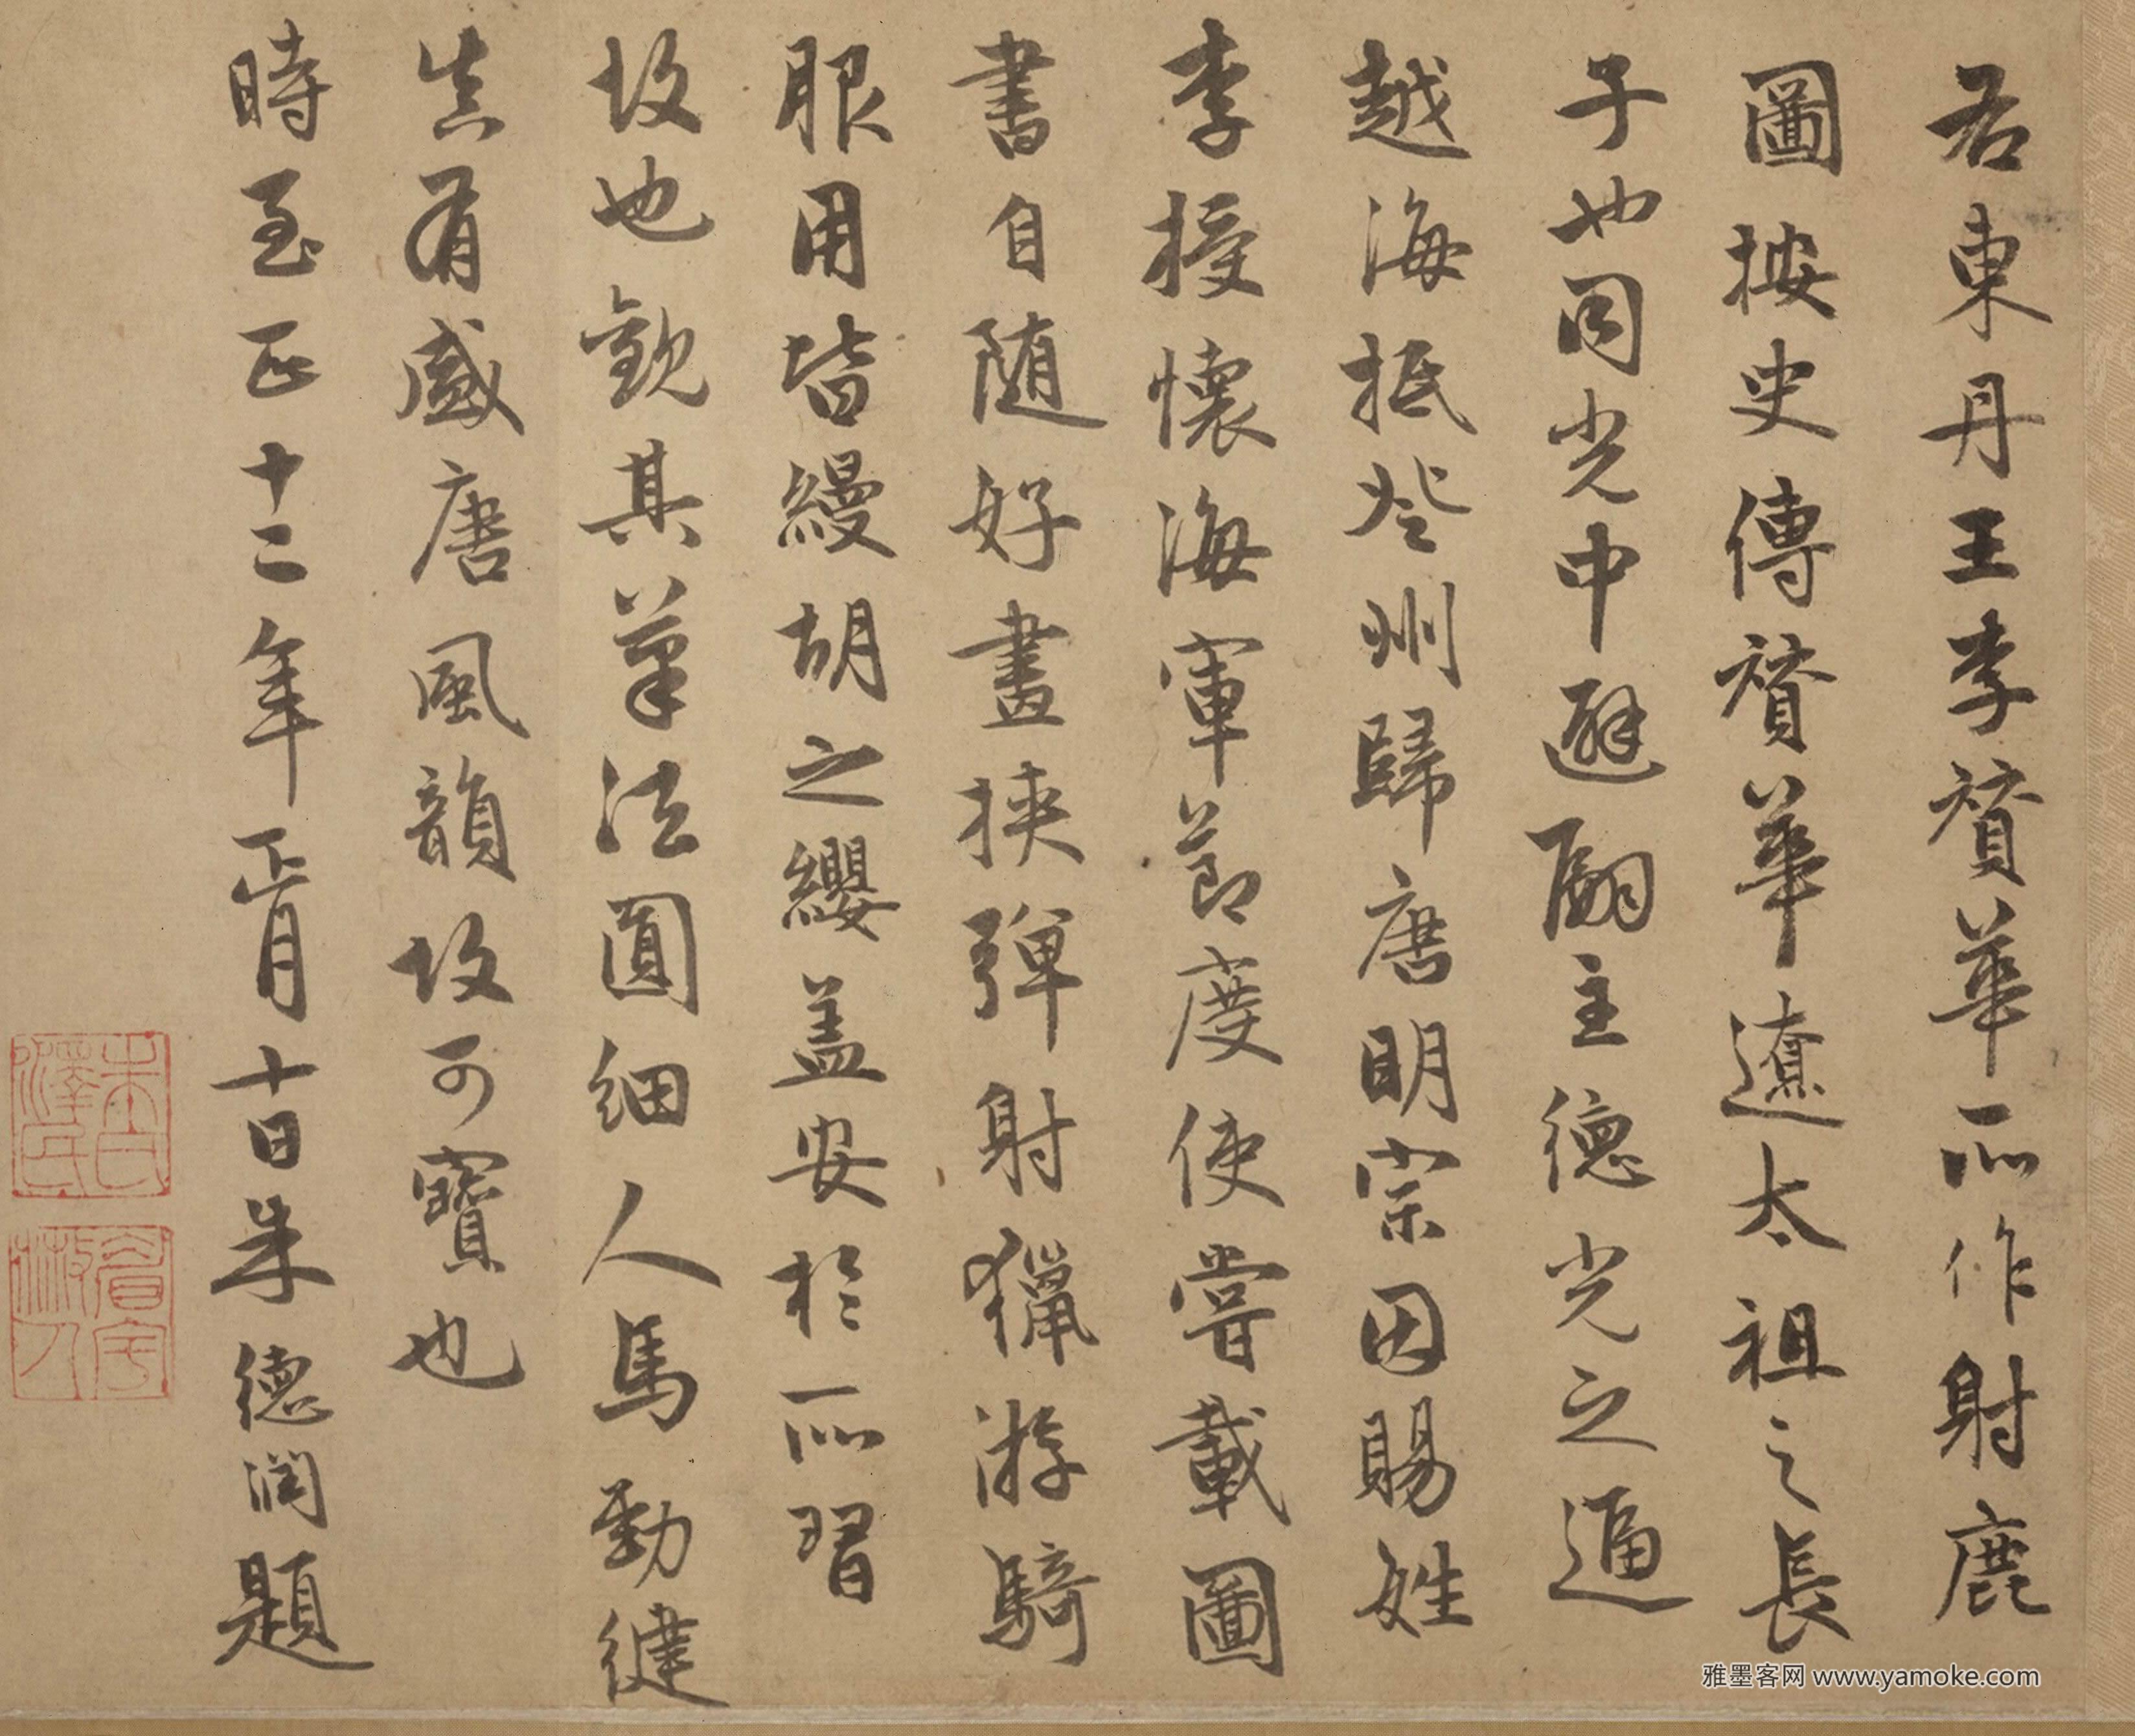 右東丹王李贊華所作射鹿
圖按史傳贊華遼太祖之長
子也同光中避嗣主德光之逼
越海抵登州歸唐明宗因賜姓
李授懷海軍節度使嘗載圖
書自随好畫挾彈射獵游騎
服用皆縵胡之纓盖安於所習
故也觀其筆法圓細人馬勁健
真有盛唐風韻故可寶也
時至正十二年正月十日朱德潤題
朱氏澤民
雅墨客网 www.yamoke.com